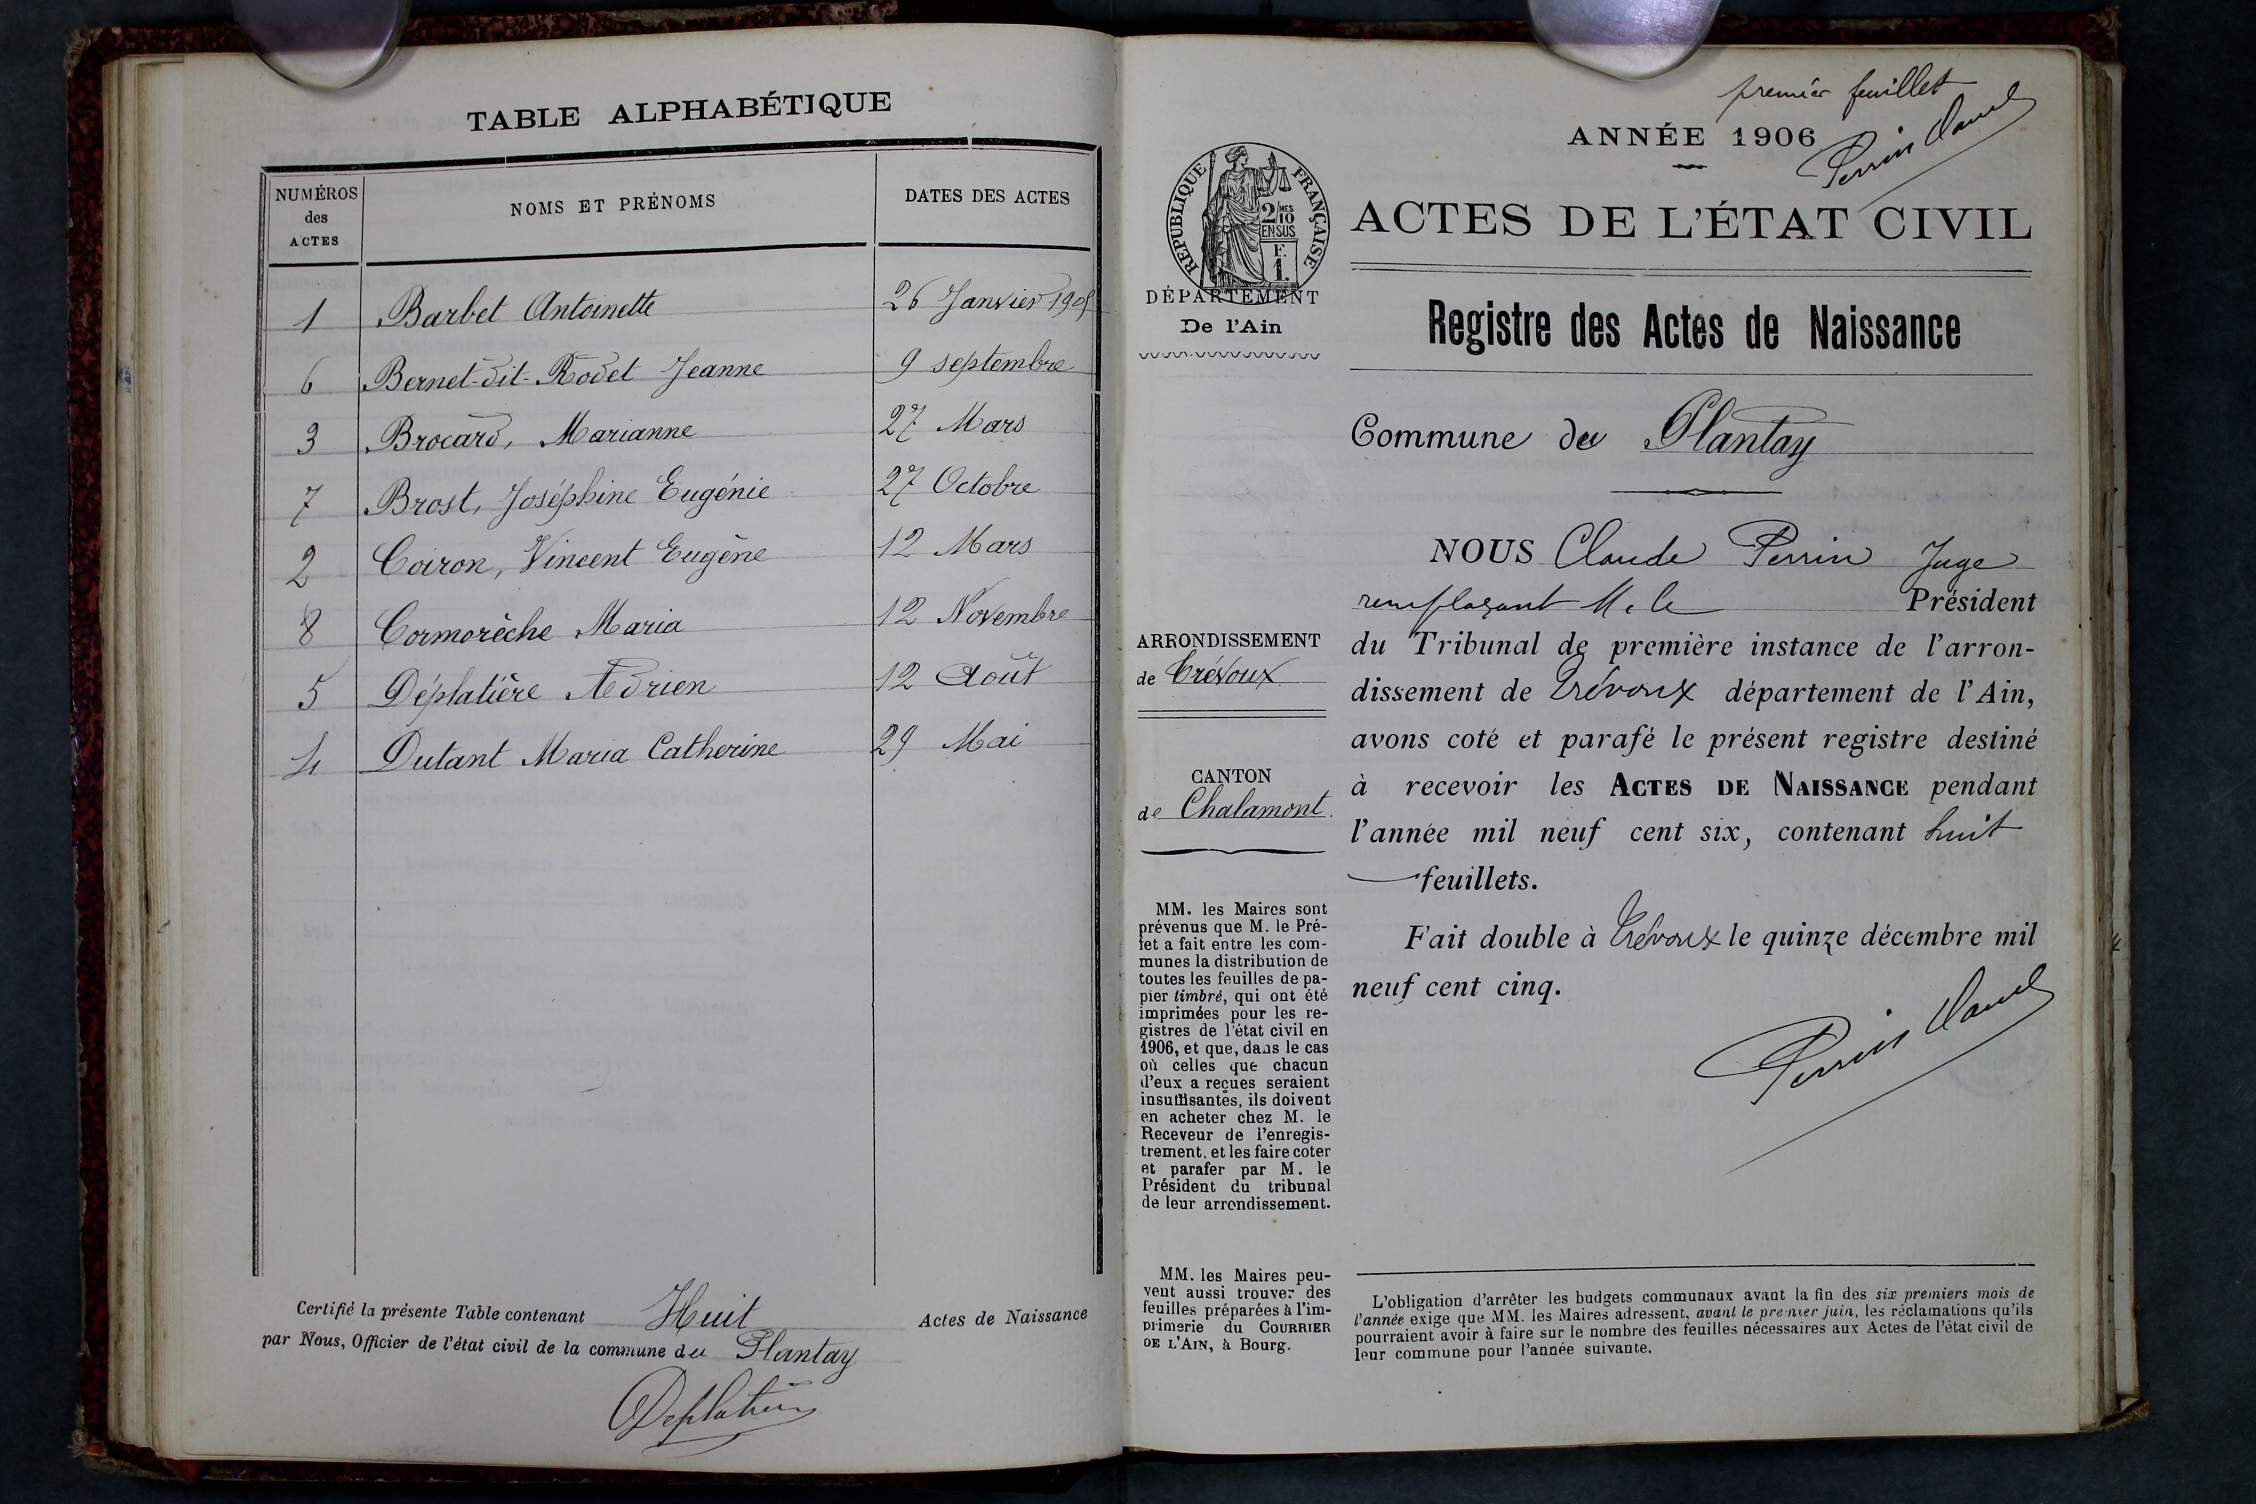 TABLE ALPHABÉTIQUE
NUMÉROS des ACTES
NOMS ET PRÉNOMS
DATES DES ACTES
1 Barbet Antoinette 26 Janvier 1905
6 Bernet-dit-Rodet Jeanne 9 septembre
3 Brocard, Marianne 27 Mars
7 Brost, Joséphine Eugénie 27 Octobre
2 Coiron, Vincent Eugène 12 Mars
8 Cormorèche Maria 12 Novembre
5 Déplatière Adrien 12 Août
4 Dutant Maria Catherine 29 Mai
Certifié la présente Table contenant Huit Actes de Naissance
par Nous, Officier de l'état civil de la commune du Plantay
Deplatière
premier feuillet
ANNÉE 1906
Perrin Claude
RÉPUBLIQUE FRANÇAISE
2/MES
10
EN SUS
F.
1.
DÉPARTEMENT
De l'Ain
ACTES DE L'ÉTAT CIVIL
Registre des Actes de Naissance
Commune du Plantay
NOUS Claude Perrin Juge
remplaçant M. le Président
du Tribunal de première instance de l'arron-
dissement de Trévoux département de l'Ain,
avons coté et parafé le présent registre destiné
à recevoir les ACTES DE NAISSANCE pendant
l'année mil neuf cent six, contenant huit
feuillets.
Fait double à Trévoux le quinze décembre mil
neuf cent cinq.
Perrin Claude
ARRONDISSEMENT
de Trévoux
CANTON
de Chalamont.
MM. les Maires sont
prévenus que M. le Pré-
fet a fait entre les com-
munes la distribution de
toutes les feuilles de pa-
pier timbré, qui ont été
imprimées pour les re-
gistres de l'état civil en
1906, et que, dans le cas
où celles que chacun
d'eux a reçues seraient
insuffisantes, ils doivent
en acheter chez M. le
Receveur de l'enregis-
trement, et les faire coter
et parafer par M. le
Président du tribunal
de leur arrondissement.
MM. les Maires peu-
vent aussi trouver des
feuilles préparées à l'im-
primerie du COURRIER
DE L'AIN, à Bourg.
L'obligation d'arrêter les budgets communaux avant la fin des six premiers mois de
l'année exige que MM. les Maires adressent, avant le premier juin, les réclamations qu'ils
pourraient avoir à faire sur le nombre des feuilles nécessaires aux Actes de l'état civil de
leur commune pour l'année suivante.